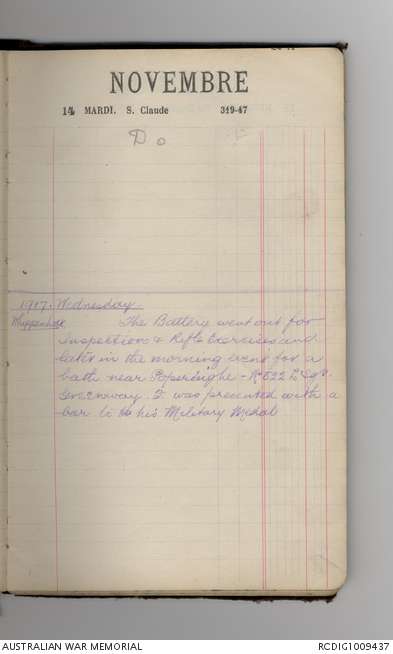 NOVEMBRE
14 MARDI. S. Claude 319-47
Do
1917. Wednesday.
The Battery went out for
Inspection & Rifle Exercises and
later in the morning went for a
bath near Poperinghe - No 522 L/Sgt.
Greenway. I. was presented with a
bar to his Military Medal
AUSTRALIAN WAR MEMORIAL
RCDIG1009437